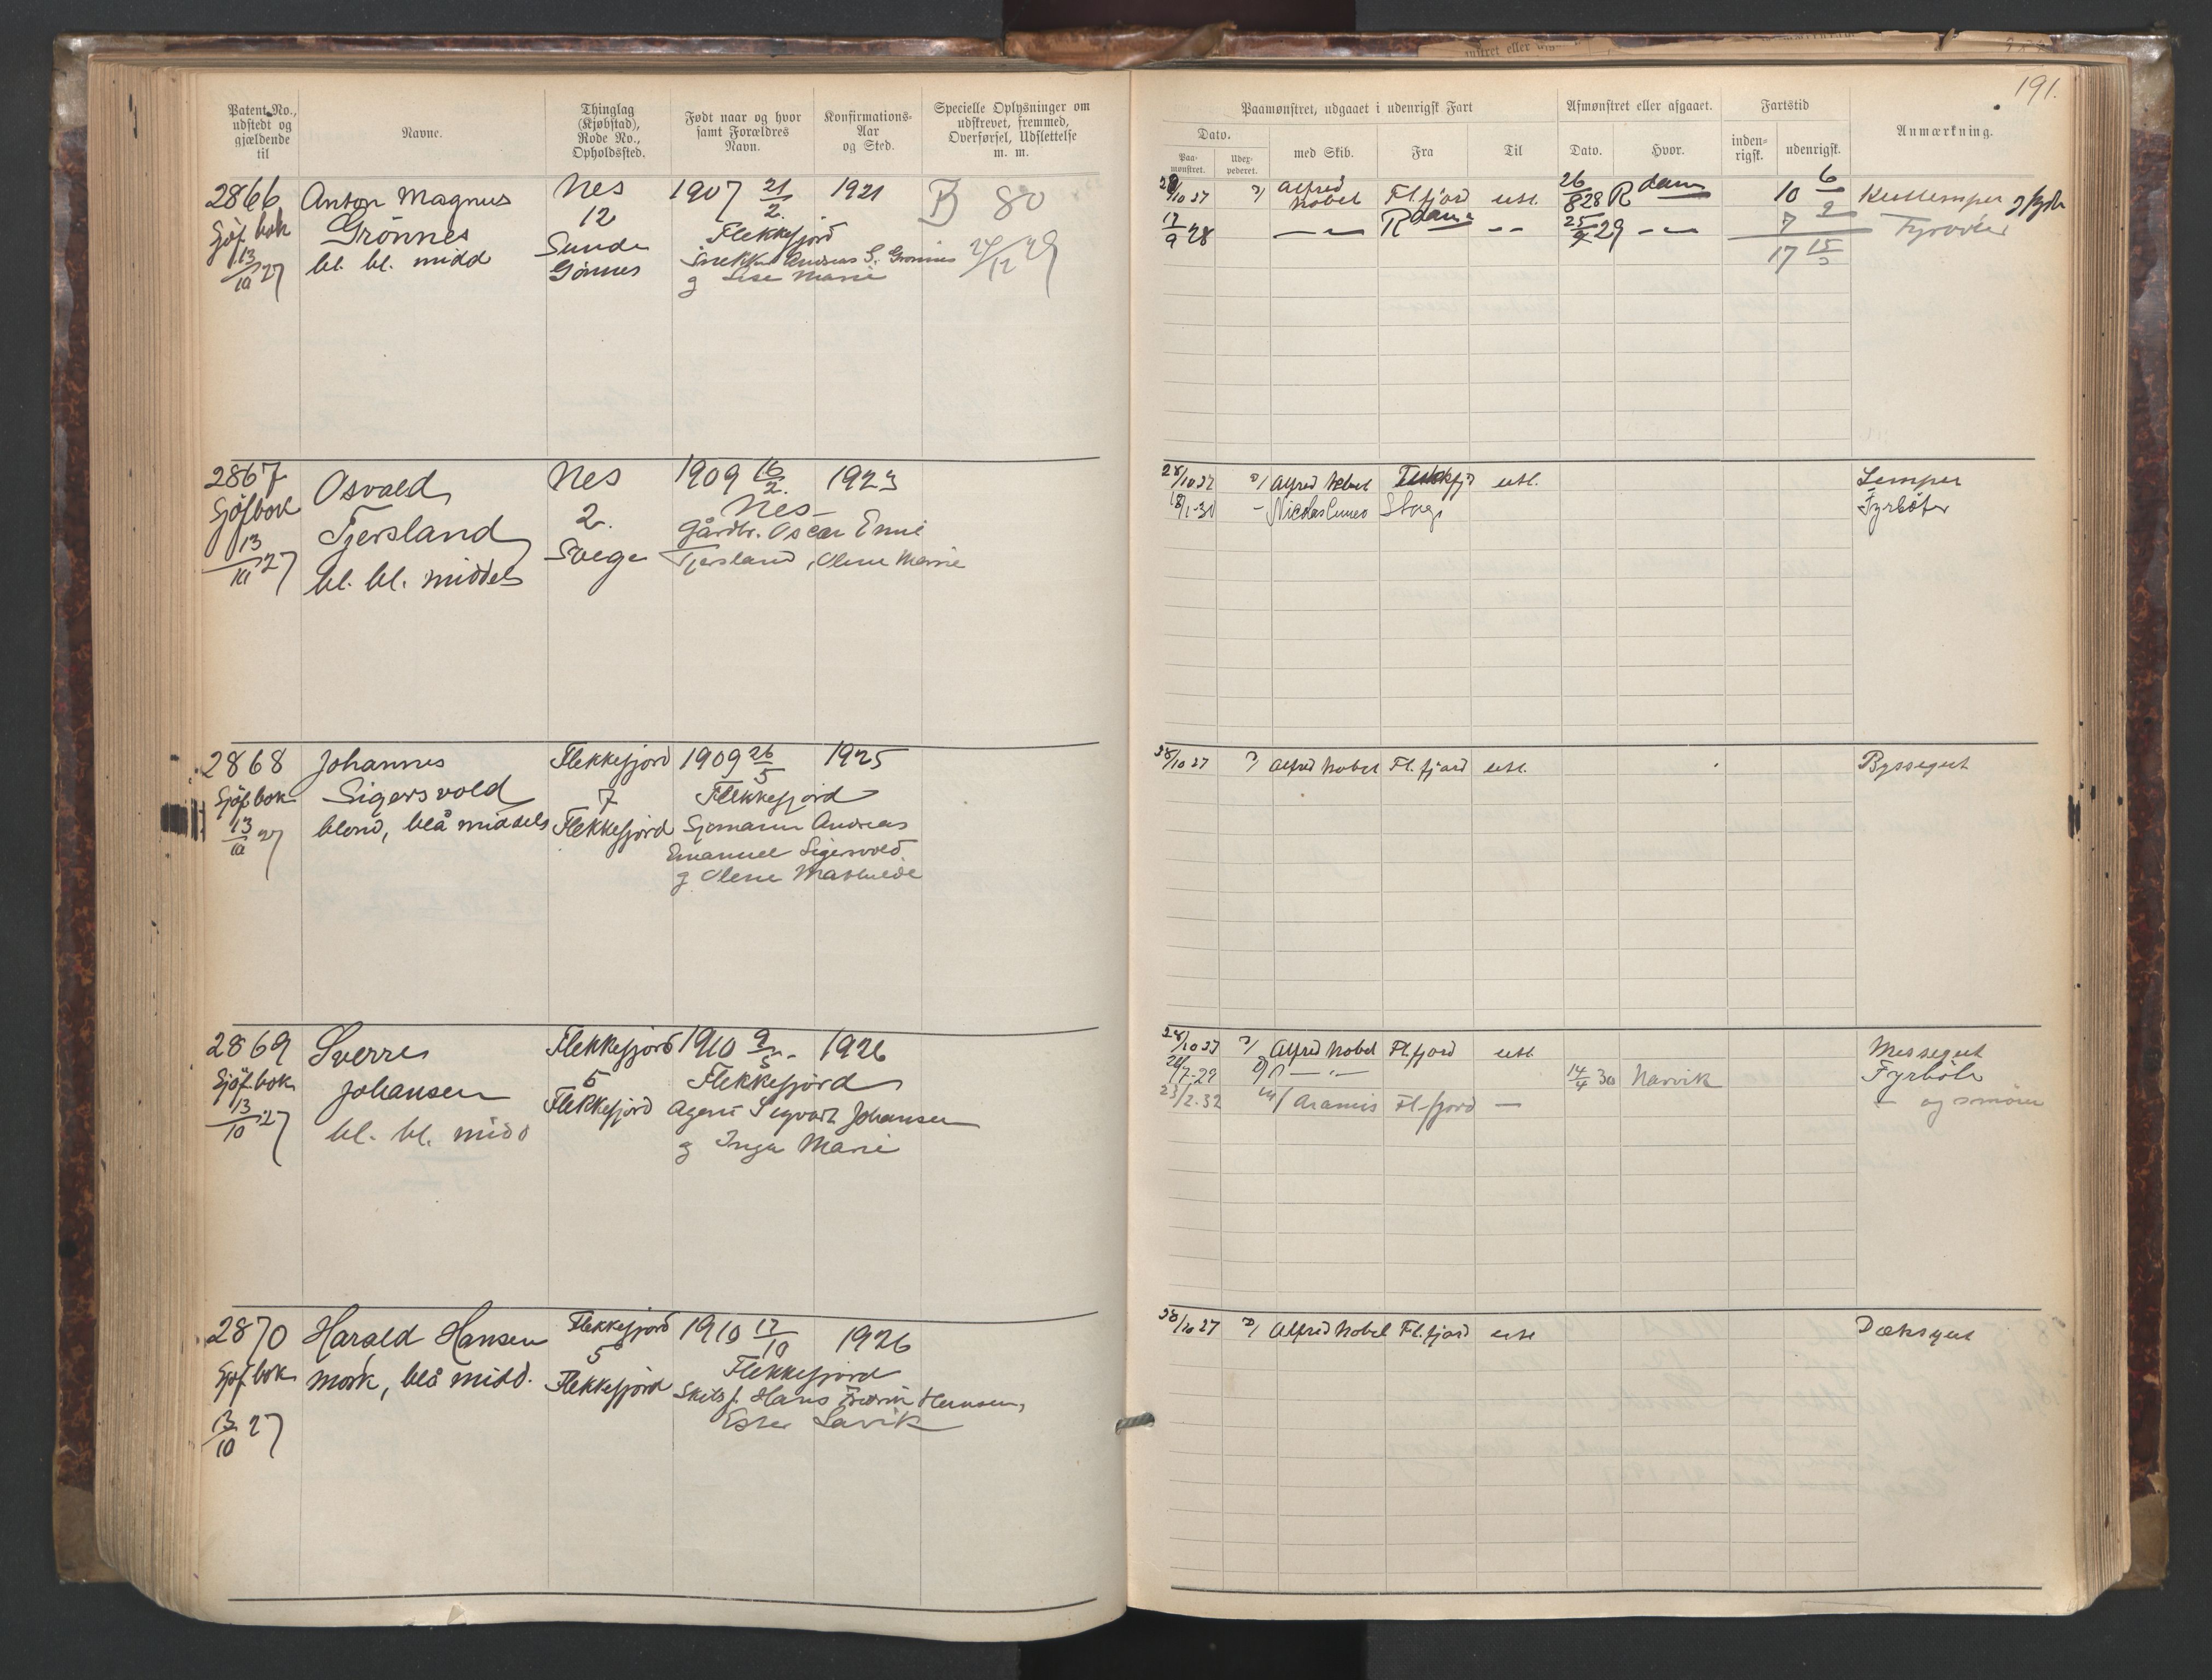 191.
Patent-No., udstedt og gjældende til
Navne.
Thinglag (Kjøbstad), Rode No., Opholdssted.
Født naar og hvor samt Forældres Navn.
Konfirmations-Aar og Sted.
Specielle Oplysninger om udskrevet, fremmed, Overførsel, Udslettelse m. m.
Paamønstret, udgaaet i udenrigsk Fart
Afmønstret eller afgaaet.
Fartstid
Anmærkning.
Dato.
Paa-mønstret.
Udex-pederet.
med Skib.
Fra
Til
Dato.
Hvor.
inden-rigsk.
udenrigsk.
2866 Anton Magnus Nes 1907 21/2 1921 B 80
Sjöf.bok Grönnes 12 Flekkefjord
13/10 27 bl. bl. midd Sunde Snekker Andreas S. Grönnes
Gönnes g Lise Marie
28/10 27 D/ Alfred Nobel Fl.fjord utl. 26/8 28 R dam 10 6
17/9 28 — R dam — 25/4 29 — 7 9 Fyrböter
17 15
2867 Osvald Nes 1909 16/2. 1923
Sjöf bok Tjersland 2. Nes
13/10 27 bl. bl. middels Svege Gårdbr. Oscar Emil
Tjersland, Olene Marie
28/10 27 D/ Alfred Nobel Flekkefj utl. Lemper
18/1-30 - Fyrböter
2868 Johannes Flekkefjord 1909 26/5 1925
Sjöf.bok Sigersvold 7 Flekkefjord
13/10 27 blond, blå middels Flekkefjord Sjömann Andreas
Emanuel Sigersvold
g Olene Mathilde
28/10 27 D/ Alfred Nobel Fl.fjord utl. Byssegut
2869 Sverre Flekkefjord 1910 9/5 - 1926
Sjöf.bok Johansen 5 Flekkefjord
13/10 27 bl. bl. midd Flekkefjord Agent Sigvart Johansen
g Inga Marie
28/10 27 D/ Alfred Nobel Fl.fjord utl. Messegut
7-29 D/ — " — 14/4 30 Narvik Fyrböter
23/2-32 m/ Aramis Fl.fjord — — og smörer
2870 Harald Hansen Flekkefjord 1910 17/10 1926
Sjöf bok mörk, blå midd. 5 Flekkefjord
13/10 27 Flekkefjord Hans Hansen,
Lavik
28/10 27 D/ Alfred Nobel Fl.fjord utl Dæksgut